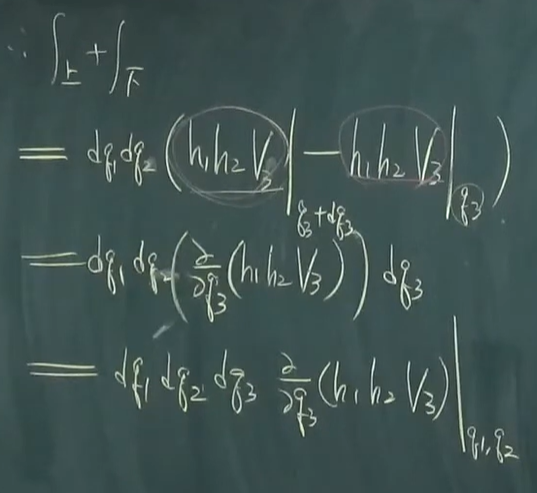 ∵ ∫上 + ∫下
= dq₁dq₂ (h₁h₂ V₃|q₃+dq₃ − h₁h₂ V₃|q₃)
= dq₁ dq₂ (∂/∂q₃ (h₁h₂ V₃)) dq₃
= dq₁ dq₂ dq₃ ∂/∂q₃ (h₁ h₂ V₃)|q₁,q₂